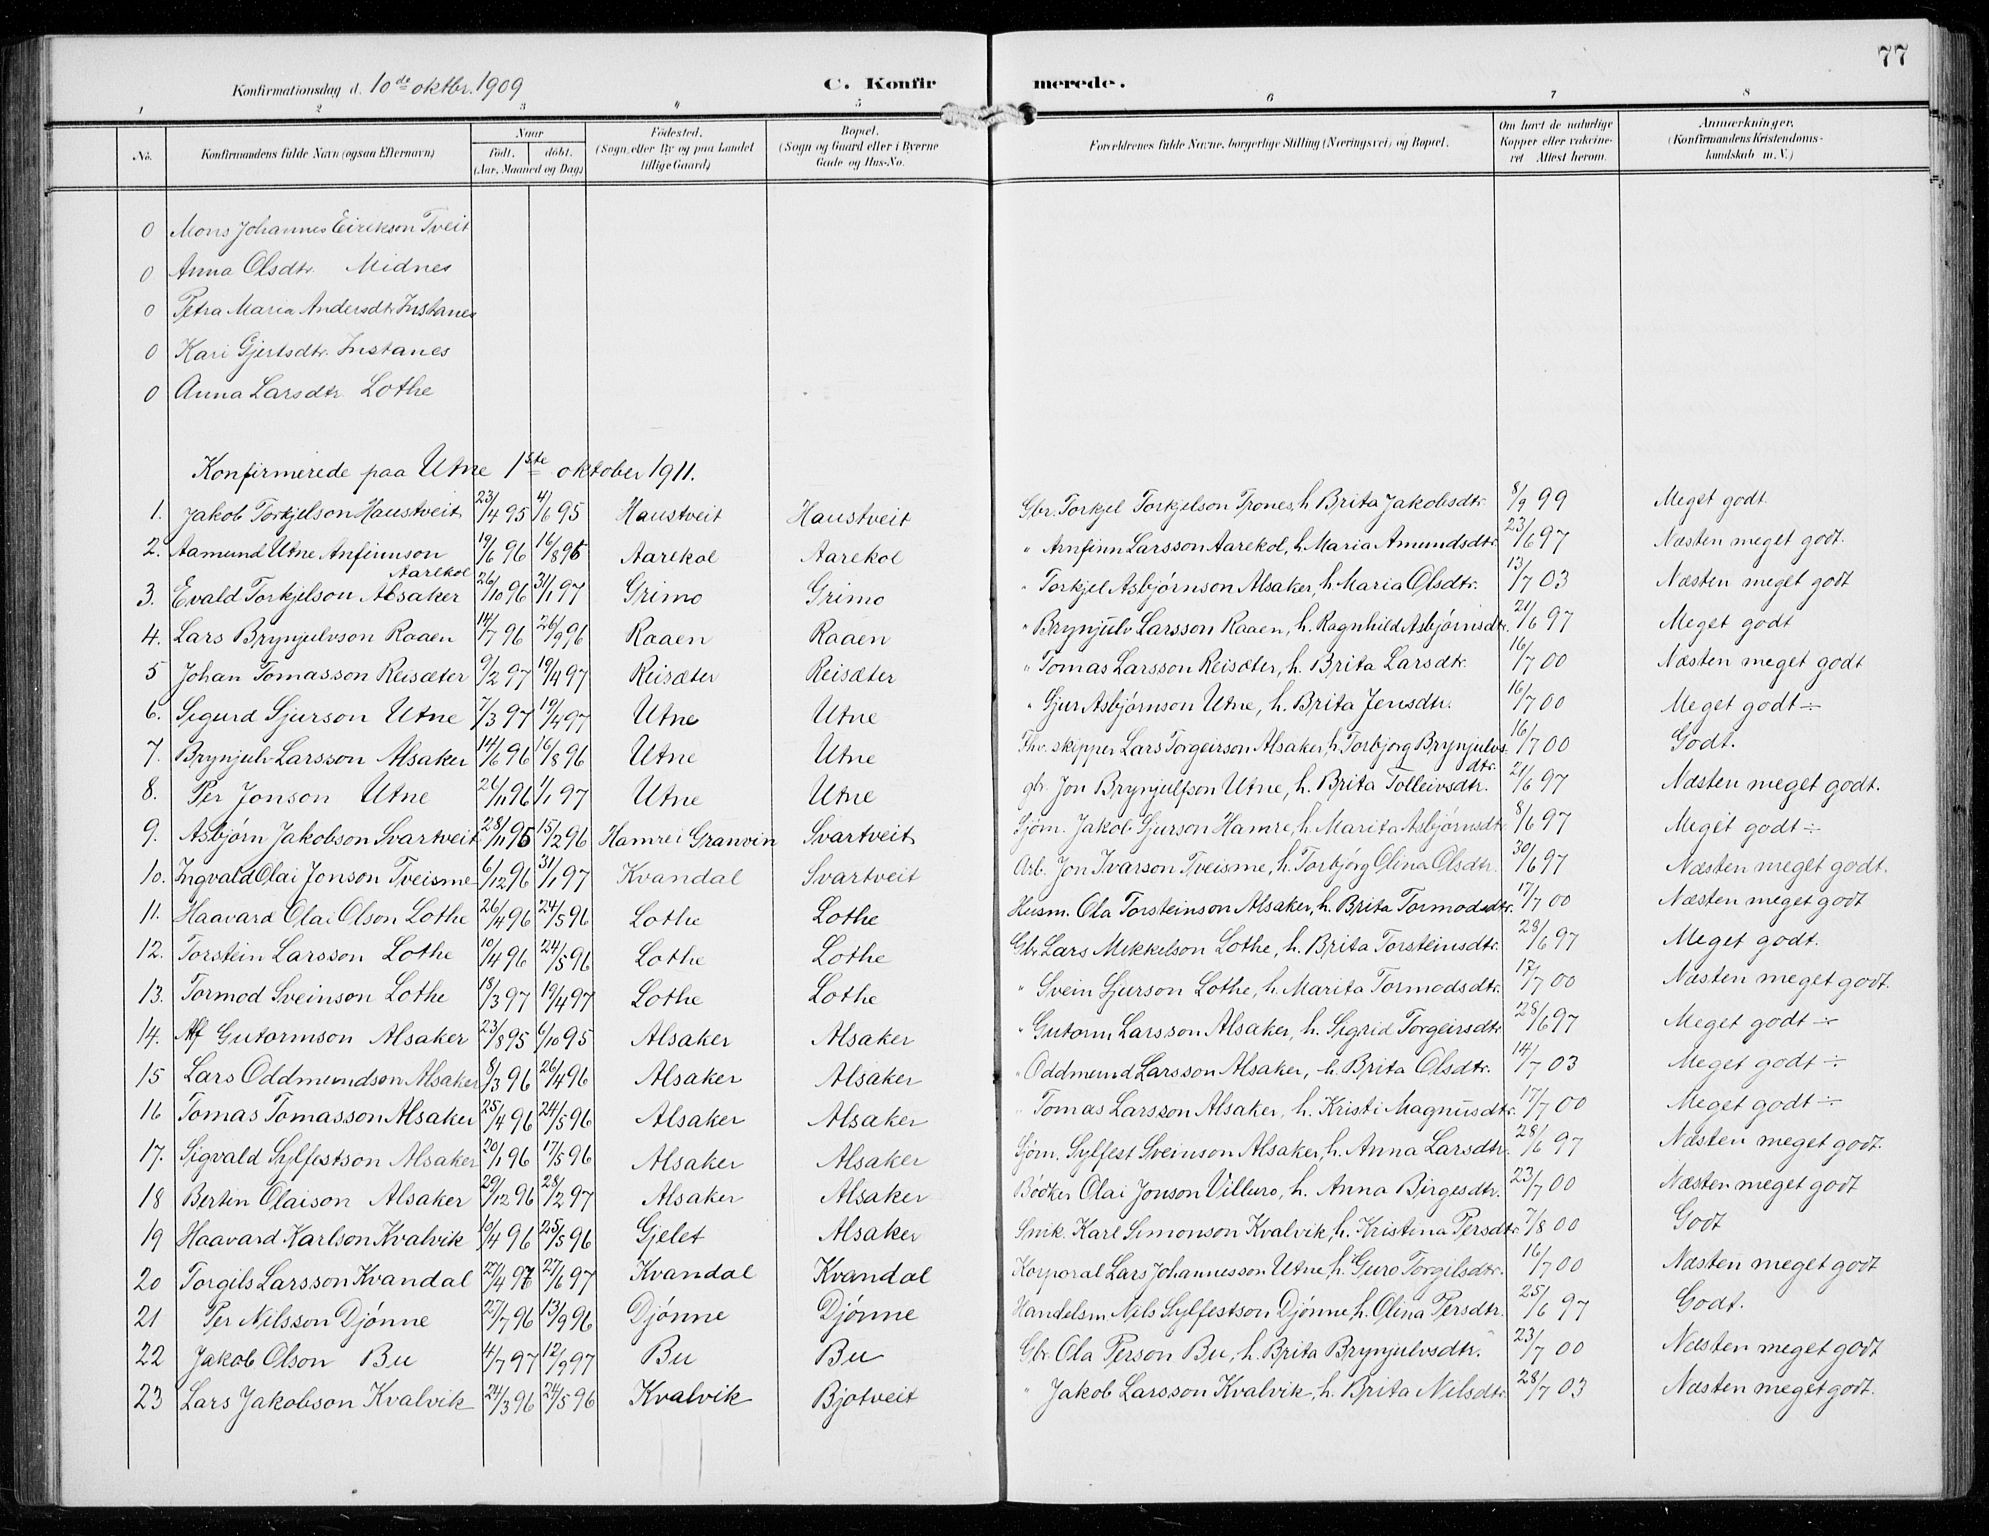 77
Konfirmationsdag d. 10de oktbr. 1909 C. Konfirmerede.
1 2 3 4 5 6 7 8
No. Konfirmandens fulde Navn (ogsaa Efternavn) Naar født. døbt. (Aar, Maaned og Dag) Fødested. (Sogn eller By og paa Landet tillige Gaard) Bopæl. (Sogn og Gaard eller i Byerne Gade og Hus-No. Forældrenes fulde Navne, borgerlige Stilling (Næringsvei) og Bopæl. Om havt de naturlige Kopper eller vakcineret Attest herom. Anmærkninger. (Konfirmandens Kristendomskundskab m. V.)
0 Mons Johannes Eirikson Tveit
0 Anna Olsdtr. Midnes
0 Petra Maria Andersdtr. Instanes
0 Kari Gjertsdtr. Instanes
0 Anna Larsdtr. Lothe
Konfirmerede paa Utne 1ste oktober 1911.
1. Jakob Torkjelson Haustveit 23/4 95 4/6 95 Haustveit Haustveit Gbr. Torkjel Torkjelson Trones, h. Brita Jakobsdtr. 8/9 99 Meget godt.
2. Aamund Utne Anfinnson Aarekol 19/6 96 16/8 96 Aarekol Aarekol " Arnfinn Larsson Aarekol, h. Maria Amundsdtr. 23/6 97 Næsten meget godt.
3. Evald Torkjelson Alsaker 26/10 96 31/1 97 Grimo Grimo " Torkjel Asbjørnson Alsaker, h. Maria Olsdtr. 13/7 03 Næsten meget godt
4. Lars Brynjulvson Raaen 14/7 96 26/9 96 Raaen Raaen " Brynjulv Larsson Raaen, h. Ragnhild Asbjørnsdtr. 21/6 97 Meget godt
5 Johan Tomasson Reisæter 9/2 97 19/4 97 Reisæter Reisæter " Tomas Larsson Reisæter, h. Brita Larsdtr. 16/7 00 Næsten meget godt
6. Sigurd Gjurson Utne 7/3 97 19/4 97 Utne Utne " Gjur Asbjørnson Utne, h. Brita Jensdtr. 16/7 00 Meget godt ÷
7. Brynjulv Larsson Alsaker 14/6 96 16/8 96 Utne Utne Fhv. skipper Lars Torgeirson Alsaker, h. Torbjorg Brynjulvsdtr. 16/7 00 Godt.
8. Per Jonson Utne 26/11 96 1/1 97 Utne Utne gb. Jon Brynjulfson Utne, h. Brita Tolleivsdtr. 21/6 97 Næsten meget godt.
9. Asbjørn Jakobson Svartveit 28/11 95 15/2 96 Hamre i Granvin Svartveit Sjøm. Jakob Gjurson Hamre, h. Marita Asbjørnsdtr. 8/6 97 Meget godt ÷
10. Ingvald Olai Jonson Tveisme 6/12 96 31/1 97 Kvandal Svartveit Arb. Jon Ivarson Tveisme, h. Torbjörg Olina Olsdtr. 30/6 97 Næsten meget godt.
11. Haavard Olai Olson Lothe 26/4 96 24/5 96 Lothe Lothe Husm. Ola Torsteinson Alsaker, h. Brita Tormodsdtr. 17/7 00 Næsten meget godt
12. Torstein Larsson Lothe 10/4 96 24/5 96 Lothe Lothe Gbr. Lars Mikkelson Lothe, h. Brita Torsteinsdtr. 28/6 97 Meget godt.
13. Tormod Sveinson Lothe 18/3 97 19/4 97 Lothe Lothe " Svein Gjurson Lothe, h. Marita Tormodsdtr. 17/7 00 Næsten meget godt.
14. Alf Gutormson Alsaker 23/8 95 6/10 95 Alsaker Alsaker " Gutorm Larsson Alsaker, h. Sigrid Torgeirsdtr. 28/6 97 Meget godt ÷
15 Lars Oddmundson Alsaker 8/3 96 26/4 96 Alsaker Alsaker " Oddmund Larsson Alsaker, h. Brita Olsdtr. 14/7 03 Meget godt ÷
16 Tomas Tomasson Alsaker 25/4 96 24/5 96 Alsaker Alsaker " Tomas Larsson Alsaker, h. Kristi Magnusdtr. 17/7 00 Meget godt ÷
17. Sigvald Sylfestson Alsaker 20/1 96 17/5 96 Alsaker Alsaker Sjøm. Sylfest Sveinson Alsaker, h. Anna Larsdtr. 28/6 97 Næsten meget godt.
18 Berten Olaison Alsaker 29/12 96 28/2 97 Alsaker Alsaker Bødker Olai Jonson Villuro, h. Anna Birgesdtr. 23/7 00 Næsten meget godt
19 Haavard Karlson Kvalvik 10/4 96 25/5 96 Gjelet Alsaker Snik. Karl Simonson Kvalvik, h. Kristina Persdtr. 7/8 00 Godt
20 Torgils Larsson Kvandal 27/4 97 27/6 97 Kvandal Kvandal Korporal Lars Johannesson Utne, h. Guro Torgilsdtr. 16/7 00 Næsten meget godt
21 Per Nilsson Djønne 27/7 96 13/9 96 Djønne Djønne Handelsm. Nils Sylfestson Djønne, h. Olina Persdtr. 25/6 97 Godt.
22 Jakob Olson Bu 4/7 97 12/9 97 Bu Bu Gbr. Ola Person Bu, h. Brita Brynjulvsdtr. 23/7 00 Næsten meget godt
23 Lars Jakobson Kvalvik 24/3 96 24/5 96 Kvalvik Bjotveit " Jakob Larsson Kvalvik, h. Brita Nilsdtr. 28/7 03 Næsten meget godt.